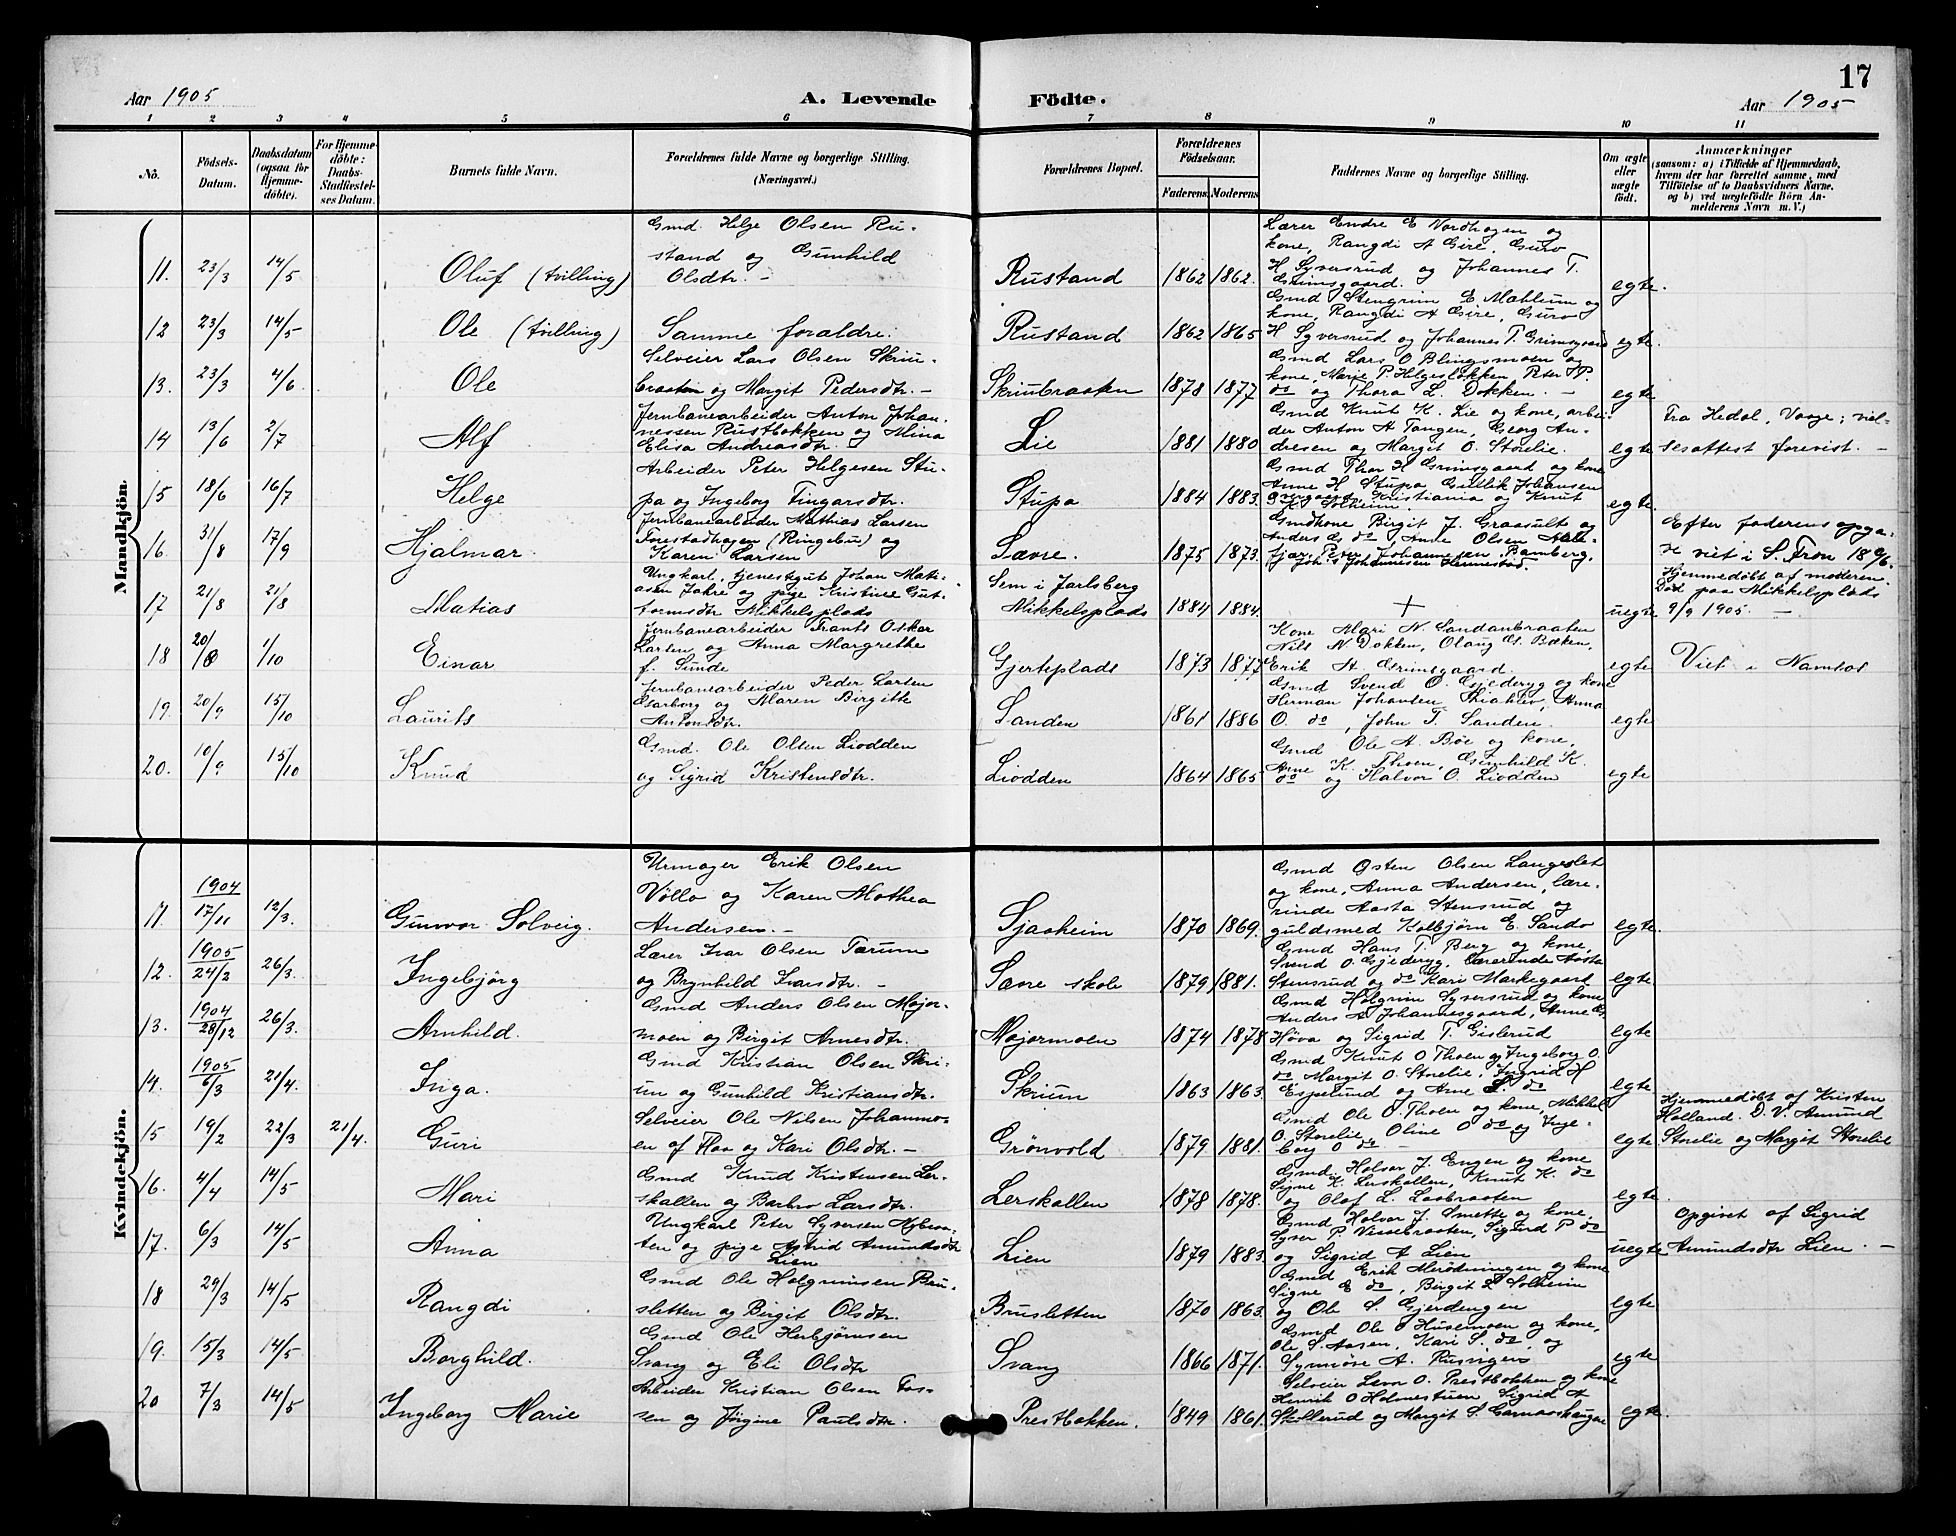 17
Aar 1905
A. Levende
Födte.
Aar 1905
1 2 3 4 5 6 7 8 9 10 11
Nô.
Födsels-Datum.
Daabsdatum (ogsaa for Hjemme-döbte).
For Hjemme-döbte: Daabs-Stadfæstel-ses Datum.
Barnets fulde Navn.
Forældrenes fulde Navne og borgerlige Stilling. (Næringsvei.)
Forældrenes Bopæl.
Forældrenes Födselsaar.
Faderens.
Moderens.
Faddernes Navne og borgerlige Stilling.
Om ægte eller uægte födt.
Anmærkninger
(saasom: a) i Tilfælde af Hjemmedaab,
hvem der har forrettet samme, med
Tilföielse af to Daabsvidners Navne,
og b) ved uægtefödte Börn An-
melderens Navn m. V.)
Mandkjön.
11. 23/3 14/5 Oluf (tvilling) Gmd. Helge Olsen Ru-
stand og Gunhild
Olsdtr. - Rustand 1862 1862. Lærer Endre E Nordhagen og
kone, Rangdi A Gire, Guro
H Syversrud og Johannes T.
Grimsgaard. egte.
12 23/3 14/5 Ole (tvilling) Samme foraldre. Rustand 1862 1865 Gmd Stengrim E Mahlum og
kone, Rangdi A Gire, Guro
H Syversrud og Johannes T. Grimsgaard egte.
13. 23/3 4/6 Ole Selveier Lars Olsen Skriu-
braaten og Margit Pedersdtr. - Skriubraaten 1878 1877 Gmd Lars O Blingsmoen og
kone, Marie P. Helgesløkken Peter P.
do og Thora L. Dokken. - egte
14 13/6 2/7 Alf Jernbanearbeider Anton Johan-
nessen Rustbakken og Mina
Elisa Andreasdtr. Lie 1881 1880 Gmd Knut K. Lie og kone, arbei
der Anton H Tangen, Georg An-
dresen og Margit O. Storelie. egte Fra Hedal, Vaage; viel-
sesattest forevist. -
15 18/6 16/7 Helge Arbeider Peter Helgesen Stu-
pa og Ingeborg Fingarsdtr. Stupa 1884 1883. Gmd Thor H Grimsgaard og kone
Anne H Stupa Gullik Johansen
Kristiania og Knut
K. Solheim. egte
16. 31/8 17/9 Hjalmar. Jernbanearbeider Mathias Larsen
Forestadhagen (Ringebu) og
Karen Larsen Sævre. 1875 1873. Gmdkone Birgit J. Graasult og
Anders G do, Anne Olsen
Peter Johannesen Bamberg, egte Efter faderens opga-
ve viet i S. Fron
17 21/8 21/8 Matias Ungkarl, tjenestgut Johan Mati-
asen Jahre og pige Kristine Gut-
tormsdtr Mikkelsplads Sem i Jarlsberg
Mikkelsplads 1884 1884. + uegte Hjemmedöbt af moderen.
Död paa Mikkelsplads
9/9 1905. -
18 20/8 1/10 Einar Jernbanearbeider Frants Oskar
Larsen og Anna Margrethe
f. Sunde Gjerteplads 1873 1877 Kone Mari N. Sandanbraaten
Nils N Dokken, Olaug G. Bakken,
Erik A. Grimsgaard. egte Viet i Namsos
19. 20/9 15/10 Laurits Jernbanearbeider Peder Larsen
Sarborg og Maren Birgitte
Antonsdtr. Sanden 1861 1886 Gmd Svend O. Gjederyg og kone
Herman Johansen Anna
O. do, John T. Sanden. egte
20. 10/9 15/10 Knud Gmd. Ole Olsen Liodden
og Sigrid Kristensdtr. Liodden 1864 1865 Gmd Ole A. Böe og kone,
Arne K. Thoen, Gunhild K.
do og Halvor O. Liodden egte
Kvindekjön.
11. 1904 17/11 12/3. Gunvor Solveig. Urmager Erik Olsen
Völlo og Karen Mathea
Andersen. - Sjaaheim 1870 1869. Gmd Östen Olsen Langeslet
og kone, Anna Andersen, lære-
rinde Aasta Stensrud og
guldsmed Kolbjörn E. Sando egte.
12. 1905 24/2 26/3. Ingebjörg Lærer Ivar Olsen Tarum
og Brynhild Ivarsdtr. - Sævre skole 1879 1881. Gmd Hans T. Berg og kone,
Svend O. Gjederyg, lærerinde Aasta
Stensrud og do Kari Markegaard egte.
13. 1904 28/12 26/3. Arnhild. Gmd Anders Olsen Major-
moen og Birgit Arnesdtr. Majormoen 1874 1878 Gmd Holgrim Syversrud og kone
Anders A Johannesgaard, Anne G.
Höva og Sigrid T. Gislerud egte
14. 1905 6/3 21/4. Inga. Gmd Kristian Olsen Skri-
un og Gunhild Kristiansdtr. Skriun 1863 1863. Gmd Knut O Thoen og Ingeborg O.
do, Margit O. Storelie, Ingrid H
Espelund og Arne S. do egte
15 19/2 22/3 21/4. Guri Selveier Ole Nilsen Johannes-
en af Flaa og Kari Olsdtr. - Grönvold 1879. 1881. Gmd Ole O. Thoen og kone, Mikkel
O. Storelie, Oline O do og Inge-
borg O do - egte Hjemmedöbt af Kristen
Holland. D. V. Amund
Storelie og Margit Storelie
16. 4/4 14/5 Mari Gmd Knud Kristensen Ler-
skallen og Barbro Larsdtr. Lerskallen 1878 1878. Gmd. Halvor J. Engen og kone
Signe K. Lerskallen, Knut K. do
og Olaf L. Laabraaten egte.
17. 6/3 14/5 Anna Ungkarl Peter Syversen Nybraa-
ten og pige Astrid Amundsdtr
Lien Lien 1879 1883. Gmd Halvor J. Smette og kone,
Syver P Vissebraaten, Sigurd P do
og Sigrid A Lien uegte Opgivet af Sigrid
Amundsdtr Lien. -
18 29/3 14/5 Rangdi Gmd Ole Holgrimsen Bru-
sletten og Birgit Olsdtr. Brusletten 1870 1863. Gmd Erik Merödningen og kone
Signe E do, Birgit L Solheim
og Ole S. Gjerdengen egte
19. 15/3 14/5. Borghild. Gmd Ole Herbjörnsen
Svang og Eli Olsdtr Svang 1866 1871. Gmd Ole O Husemoen og kone,
Ole S. Aasen, Kari S. do, og
Synnöve A. Rusvigen egte
20 7/3 14/5 Ingeborg Marie Arbeider Kristian Olsen Fos-
sen og Jörgine Paulsdtr. Prestbakken. 1849 1861. Selveier Levor O. Prestbakken og kone
Henrik O Holmestuen Sigrid A
Skollerud og Margit S. Garnaashaugen egte.